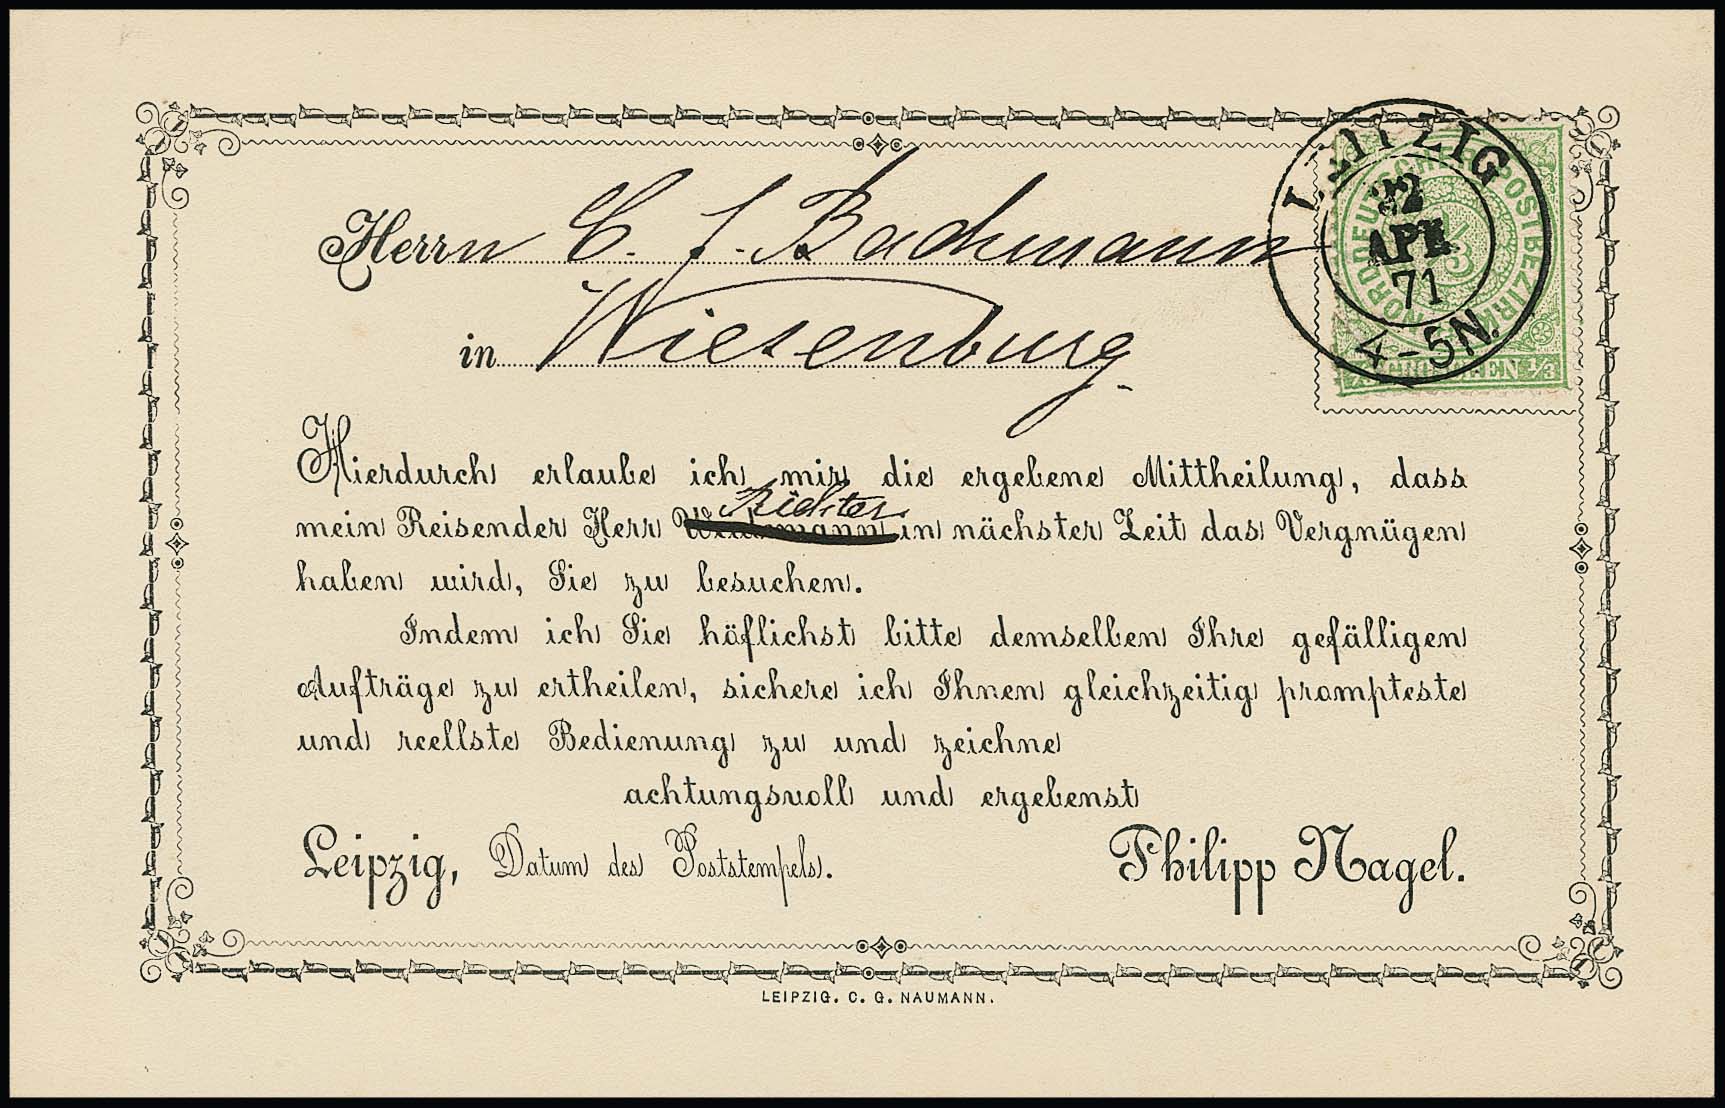 LEIPZIG
22
APR
71
4-5N.
NORDDEUTSCHER POSTBEZIRK
1/3 GROSCHEN 1/3
Herrn C. F. Bachmann
in Wiesenburg
Hierdurch erlaube ich mir die ergebene Mittheilung, dass
Richter
mein Reisender Herr in nächster Zeit das Vergnügen
haben wird, Sie zu besuchen.
Indem ich Sie höflichst bitte demselben Ihre gefälligen
Aufträge zu ertheilen, sichere ich Ihnen gleichzeitig prompteste
und reellste Bedienung zu und zeichne
achtungsvoll und ergebenst
Leipzig, Datum des Poststempels. Philipp Nagel.
LEIPZIG. C. G. NAUMANN.